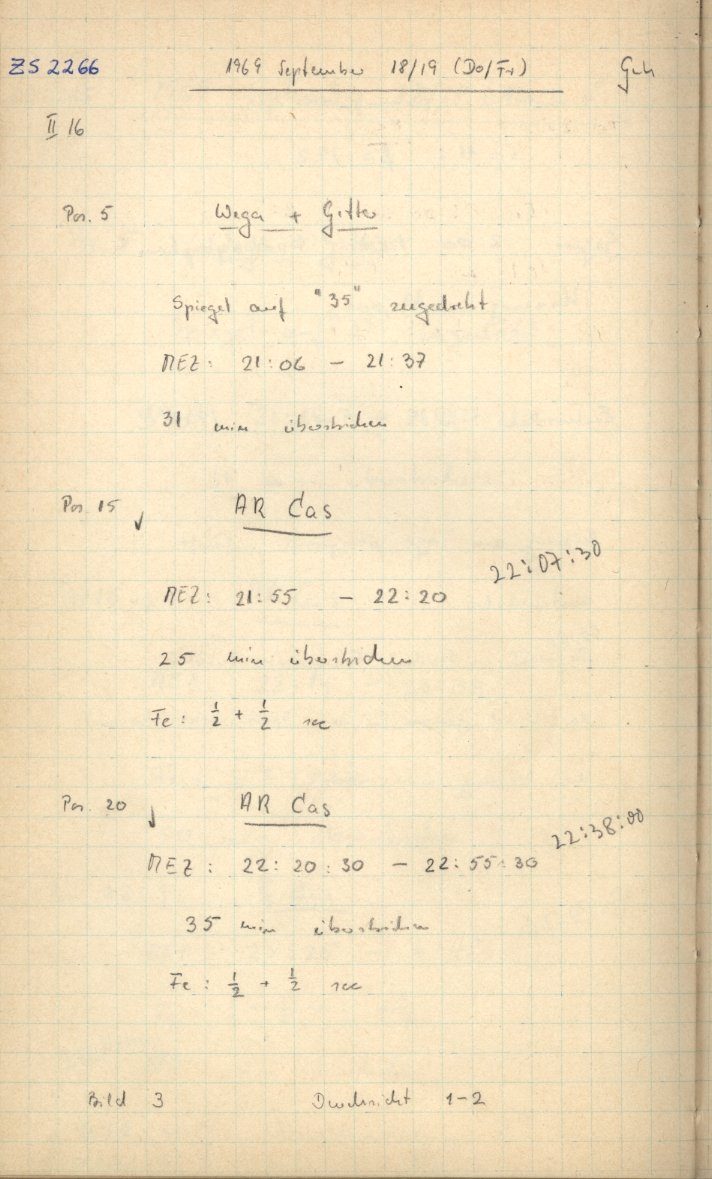 ZS 2266 1969 September 18/19 (Do/Fr)
II 16
Pos. 5 Wega + Gitter
Spiegel auf "35" zugedreht
MEZ: 21:06 – 21:37
31 min überstrichen
Pos. 15 AR Cas
22:07:30
MEZ: 21:55 – 22:20
25 min überstrichen
Fe: 1/2 + 1/2 sec
Pos. 20 AR Cas
22:38:00
MEZ: 22:20:30 – 22:55:30
35 min überstrichen
Fe: 1/2 + 1/2 sec
Bild 3 Durchsicht 1–2